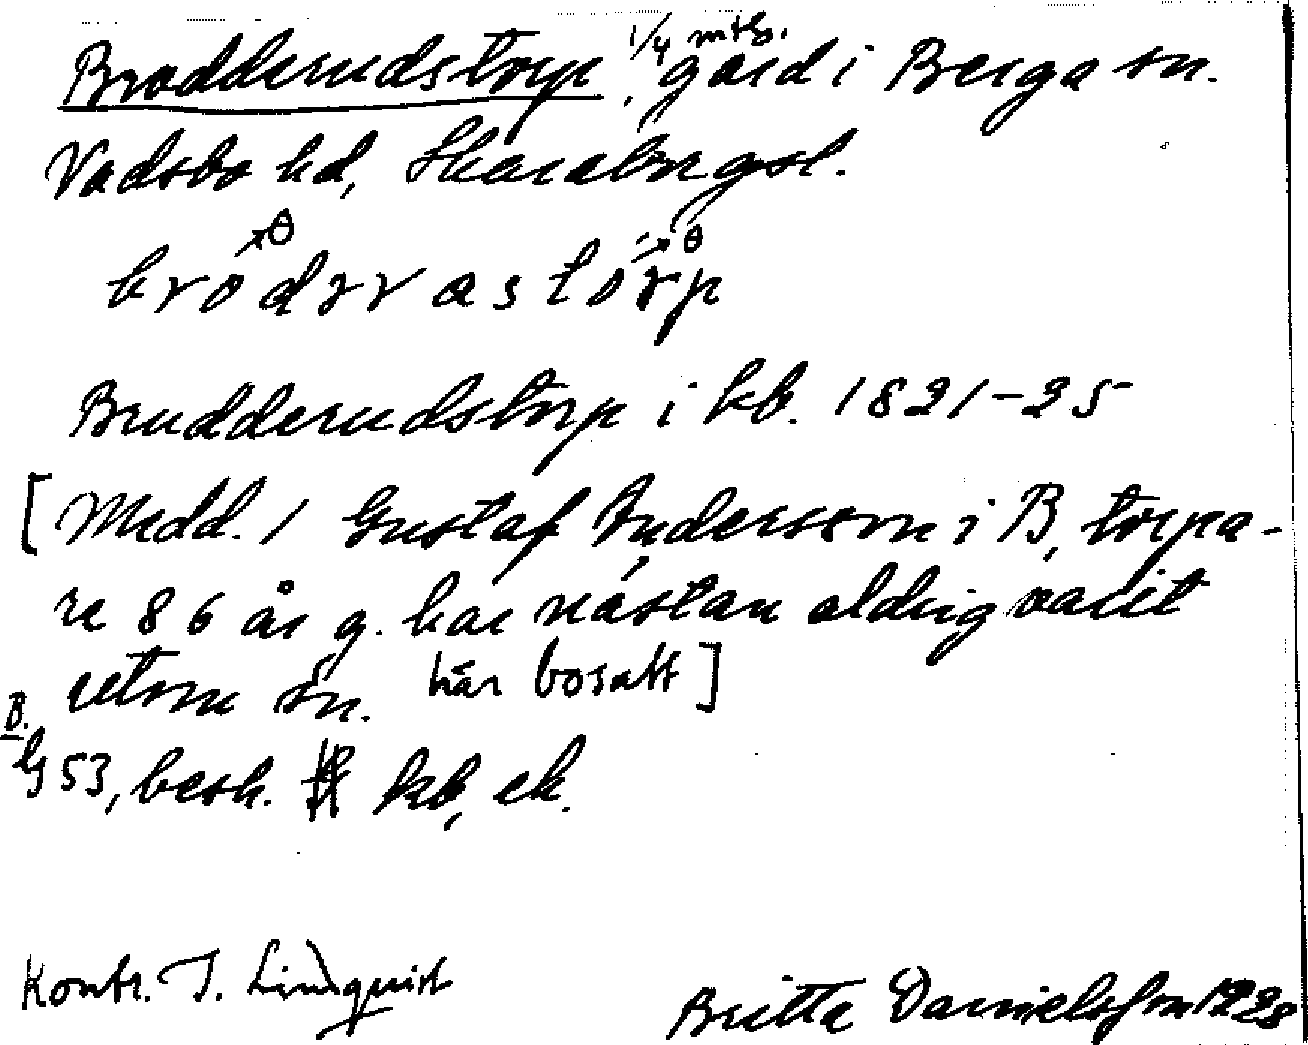 Brodderudstorp, 1/4 mtl. gård i Berga sn.
Vadsbo hd, Skaraborgsl.
Brudderudstorp i kb. 1821-25
[Medd. / Gustaf Andersson i B, torpa-
re 86 år g. har nästan aldrig varit
utom sn. här bosatt]
B.
G 53, besk. kb, ek.
Kontr. I. Lindquist
Britta Danielsson 1928